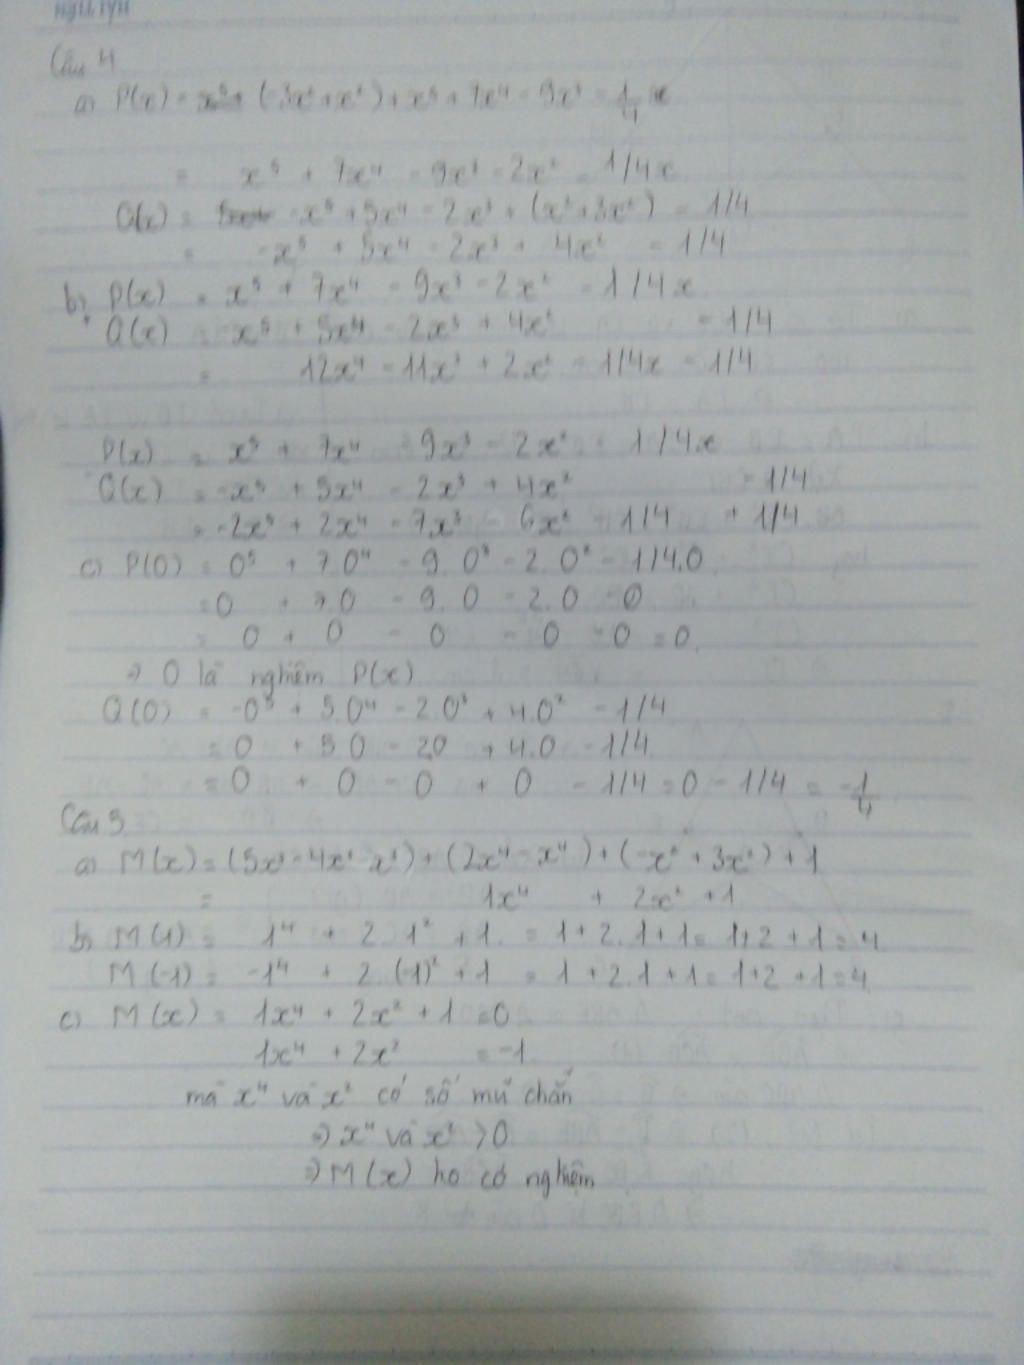 Câu 4
a) P(x) = (-3x² + x²) + x⁵ + 7x⁴ - 9x³ - 1/4 x
= x⁵ + 7x⁴ - 9x³ - 2x² - 1/4x
Q(x) = -x⁵ + 5x⁴ - 2x³ + (x² + 3x²) - 1/4
= -x⁵ + 5x⁴ - 2x³ + 4x² - 1/4
b) P(x) = x⁵ + 7x⁴ - 9x³ - 2x² - 1/4x
Q(x) = -x⁵ + 5x⁴ - 2x³ + 4x² - 1/4
= 12x⁴ - 11x³ + 2x² - 1/4x - 1/4
P(x) = x⁵ + 7x⁴ - 9x³ - 2x² - 1/4x
Q(x) = -x⁵ + 5x⁴ - 2x³ + 4x² - 1/4
= -2x⁵ + 2x⁴ - 7x³ - 6x² - 1/4 + 1/4
c) P(0) = 0⁵ + 7.0⁴ - 9.0³ - 2.0² - 1/4.0
= 0 + 7.0 - 9.0 - 2.0 - 0
= 0 + 0 - 0 - 0 - 0 = 0
⇒ 0 là nghiệm P(x)
Q(0) = -0⁵ + 5.0⁴ - 2.0³ + 4.0² - 1/4
= 0 + 5.0 - 2.0 + 4.0 - 1/4
= 0 + 0 - 0 + 0 - 1/4 = 0 - 1/4 = -1/4
Câu 5
a) M(x) = (5x³ - 4x³ - x³) + (2x⁴ - x⁴) + (-x² + 3x²) + 1
= 1x⁴ + 2x² + 1
b) M(1) = 1⁴ + 2.1² + 1 = 1 + 2.1 + 1 = 1 + 2 + 1 = 4
M(-1) = -1⁴ + 2.(-1)² + 1 = 1 + 2.1 + 1 = 1 + 2 + 1 = 4
c) M(x) = 1x⁴ + 2x² + 1 = 0
1x⁴ + 2x² = -1
mà x⁴ và x² có số mũ chẵn
⇒ x⁴ và x² > 0
⇒ M(x) ko có nghiệm